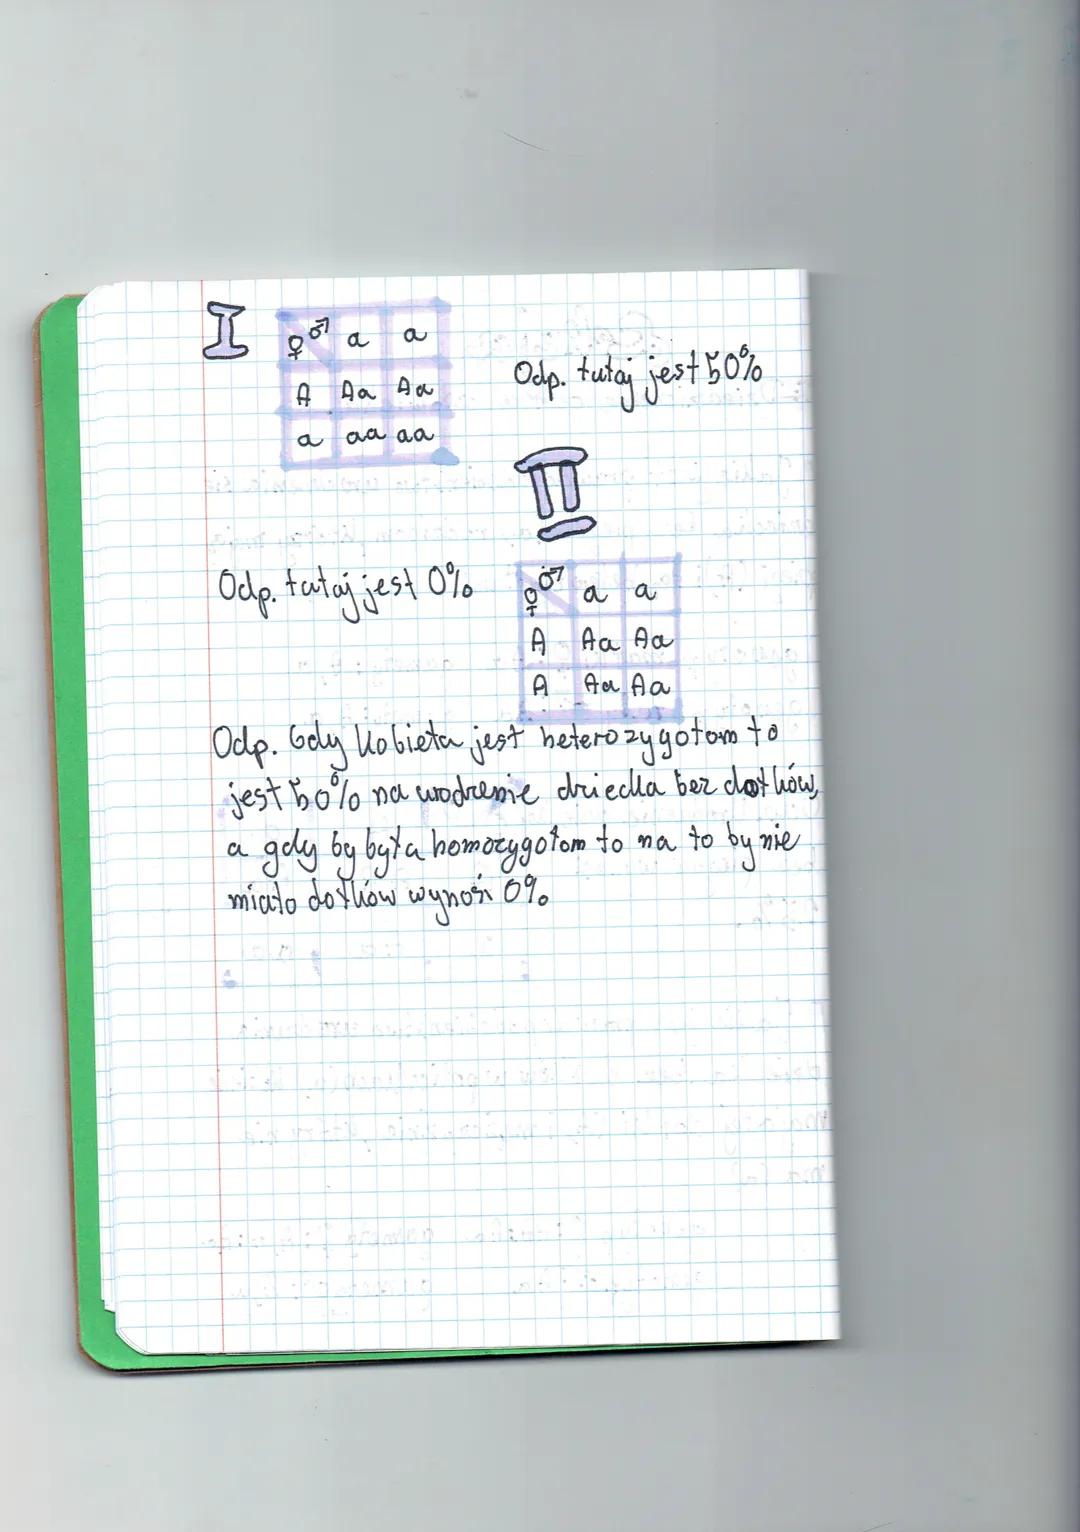 I
♀ ♂ a a
A Aa Aa
a aa aa
Odp. tutaj jest 50%
II
Odp. tutaj jest 0%
♀ ♂ a a
A Aa Aa
A Aa Aa
Odp. Gdy kobieta jest heterozygotom to
jest 50% na urodzenie dziecka bez dołków,
a gdy by była homozygotom to na to by nie
miało dołków wynosi 0%